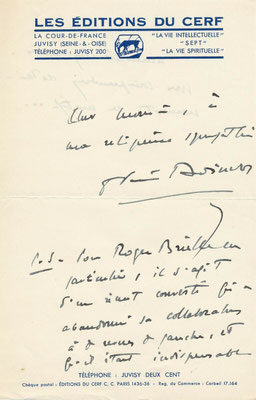 LES ÉDITIONS DU CERF
LA COUR-DE-FRANCE
JUVISY (SEINE-&-OISE)
TÉLÉPHONE : JUVISY 200
"LA VIE INTELLECTUELLE"
"SEPT"
"LA VIE SPIRITUELLE"
Cher Monsieur, à
ma religieuse sympathie
P.S. Pour Roger
particulier, il s'agit
d'un récent converti qui a
abandonné sa collaboration
à des revues de gauche, et
qu'il était indispensable
TÉLÉPHONE : JUVISY DEUX CENT
Chèque postal : ÉDITIONS DU CERF C. C. PARIS 1436-36 - Reg. du Commerce : Corbeil 17.164